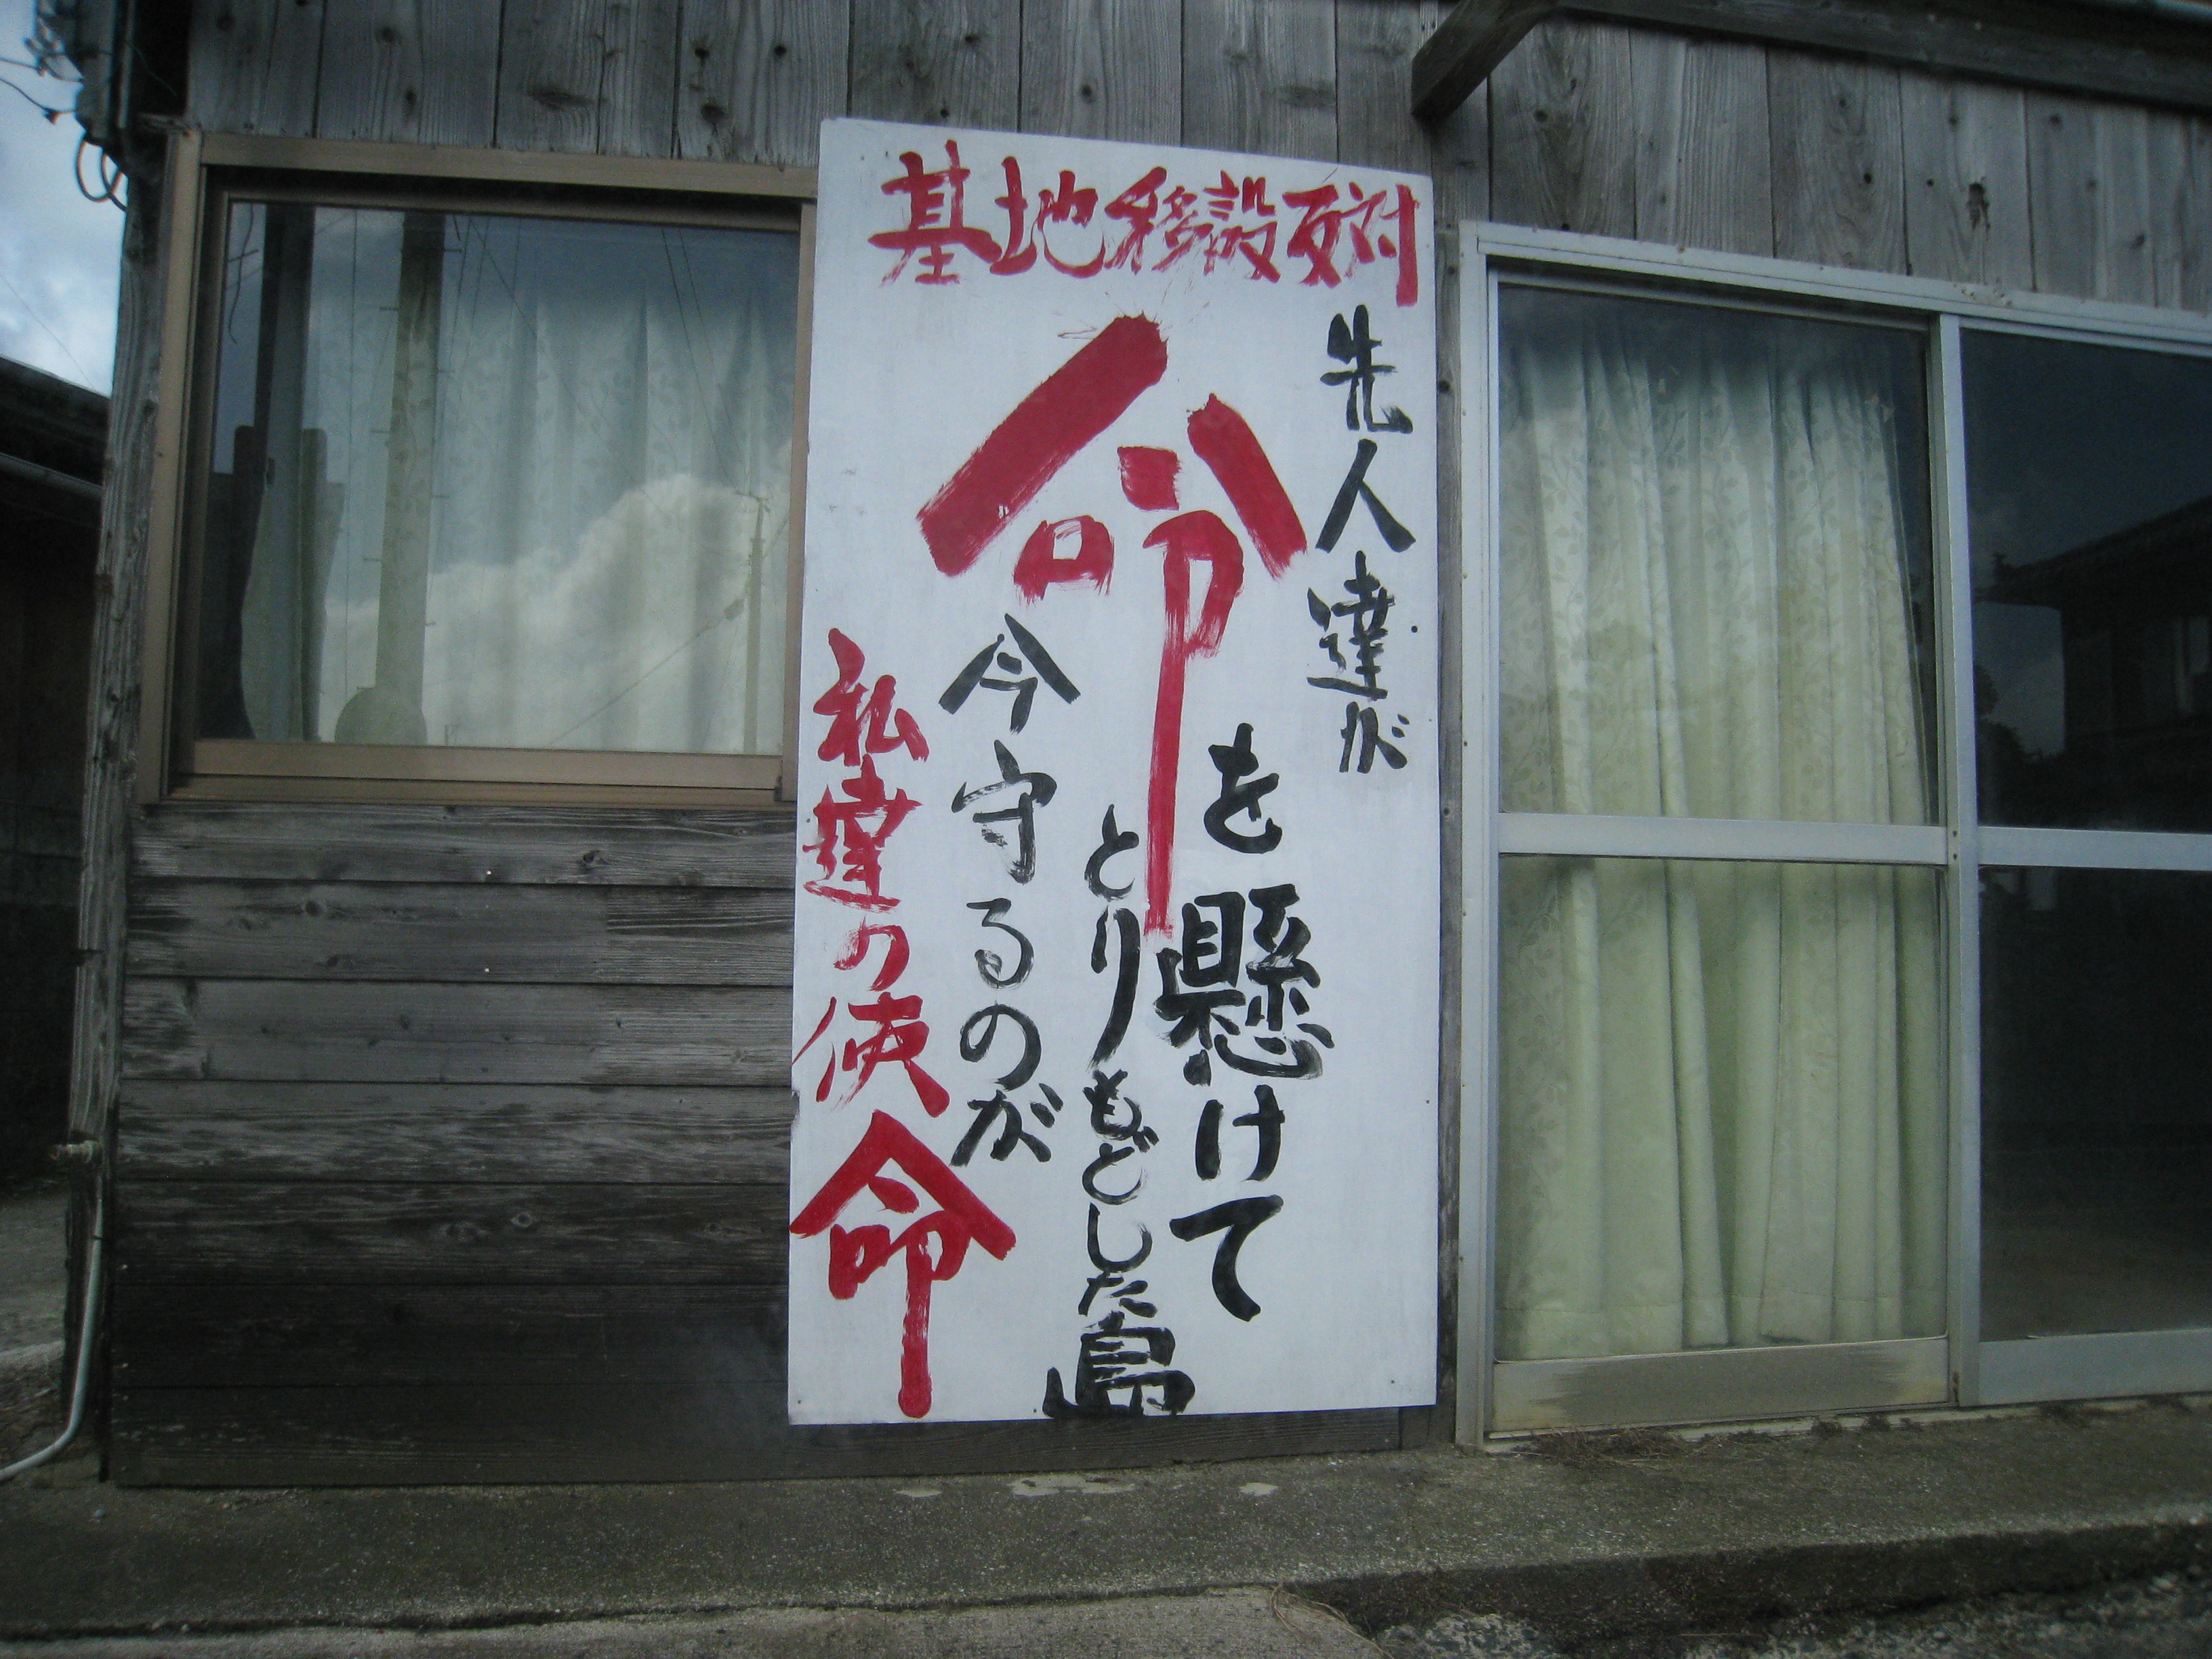 基地移設反対
先人達が
命を懸けて
とりもどした島
今守るのが
私達の使命